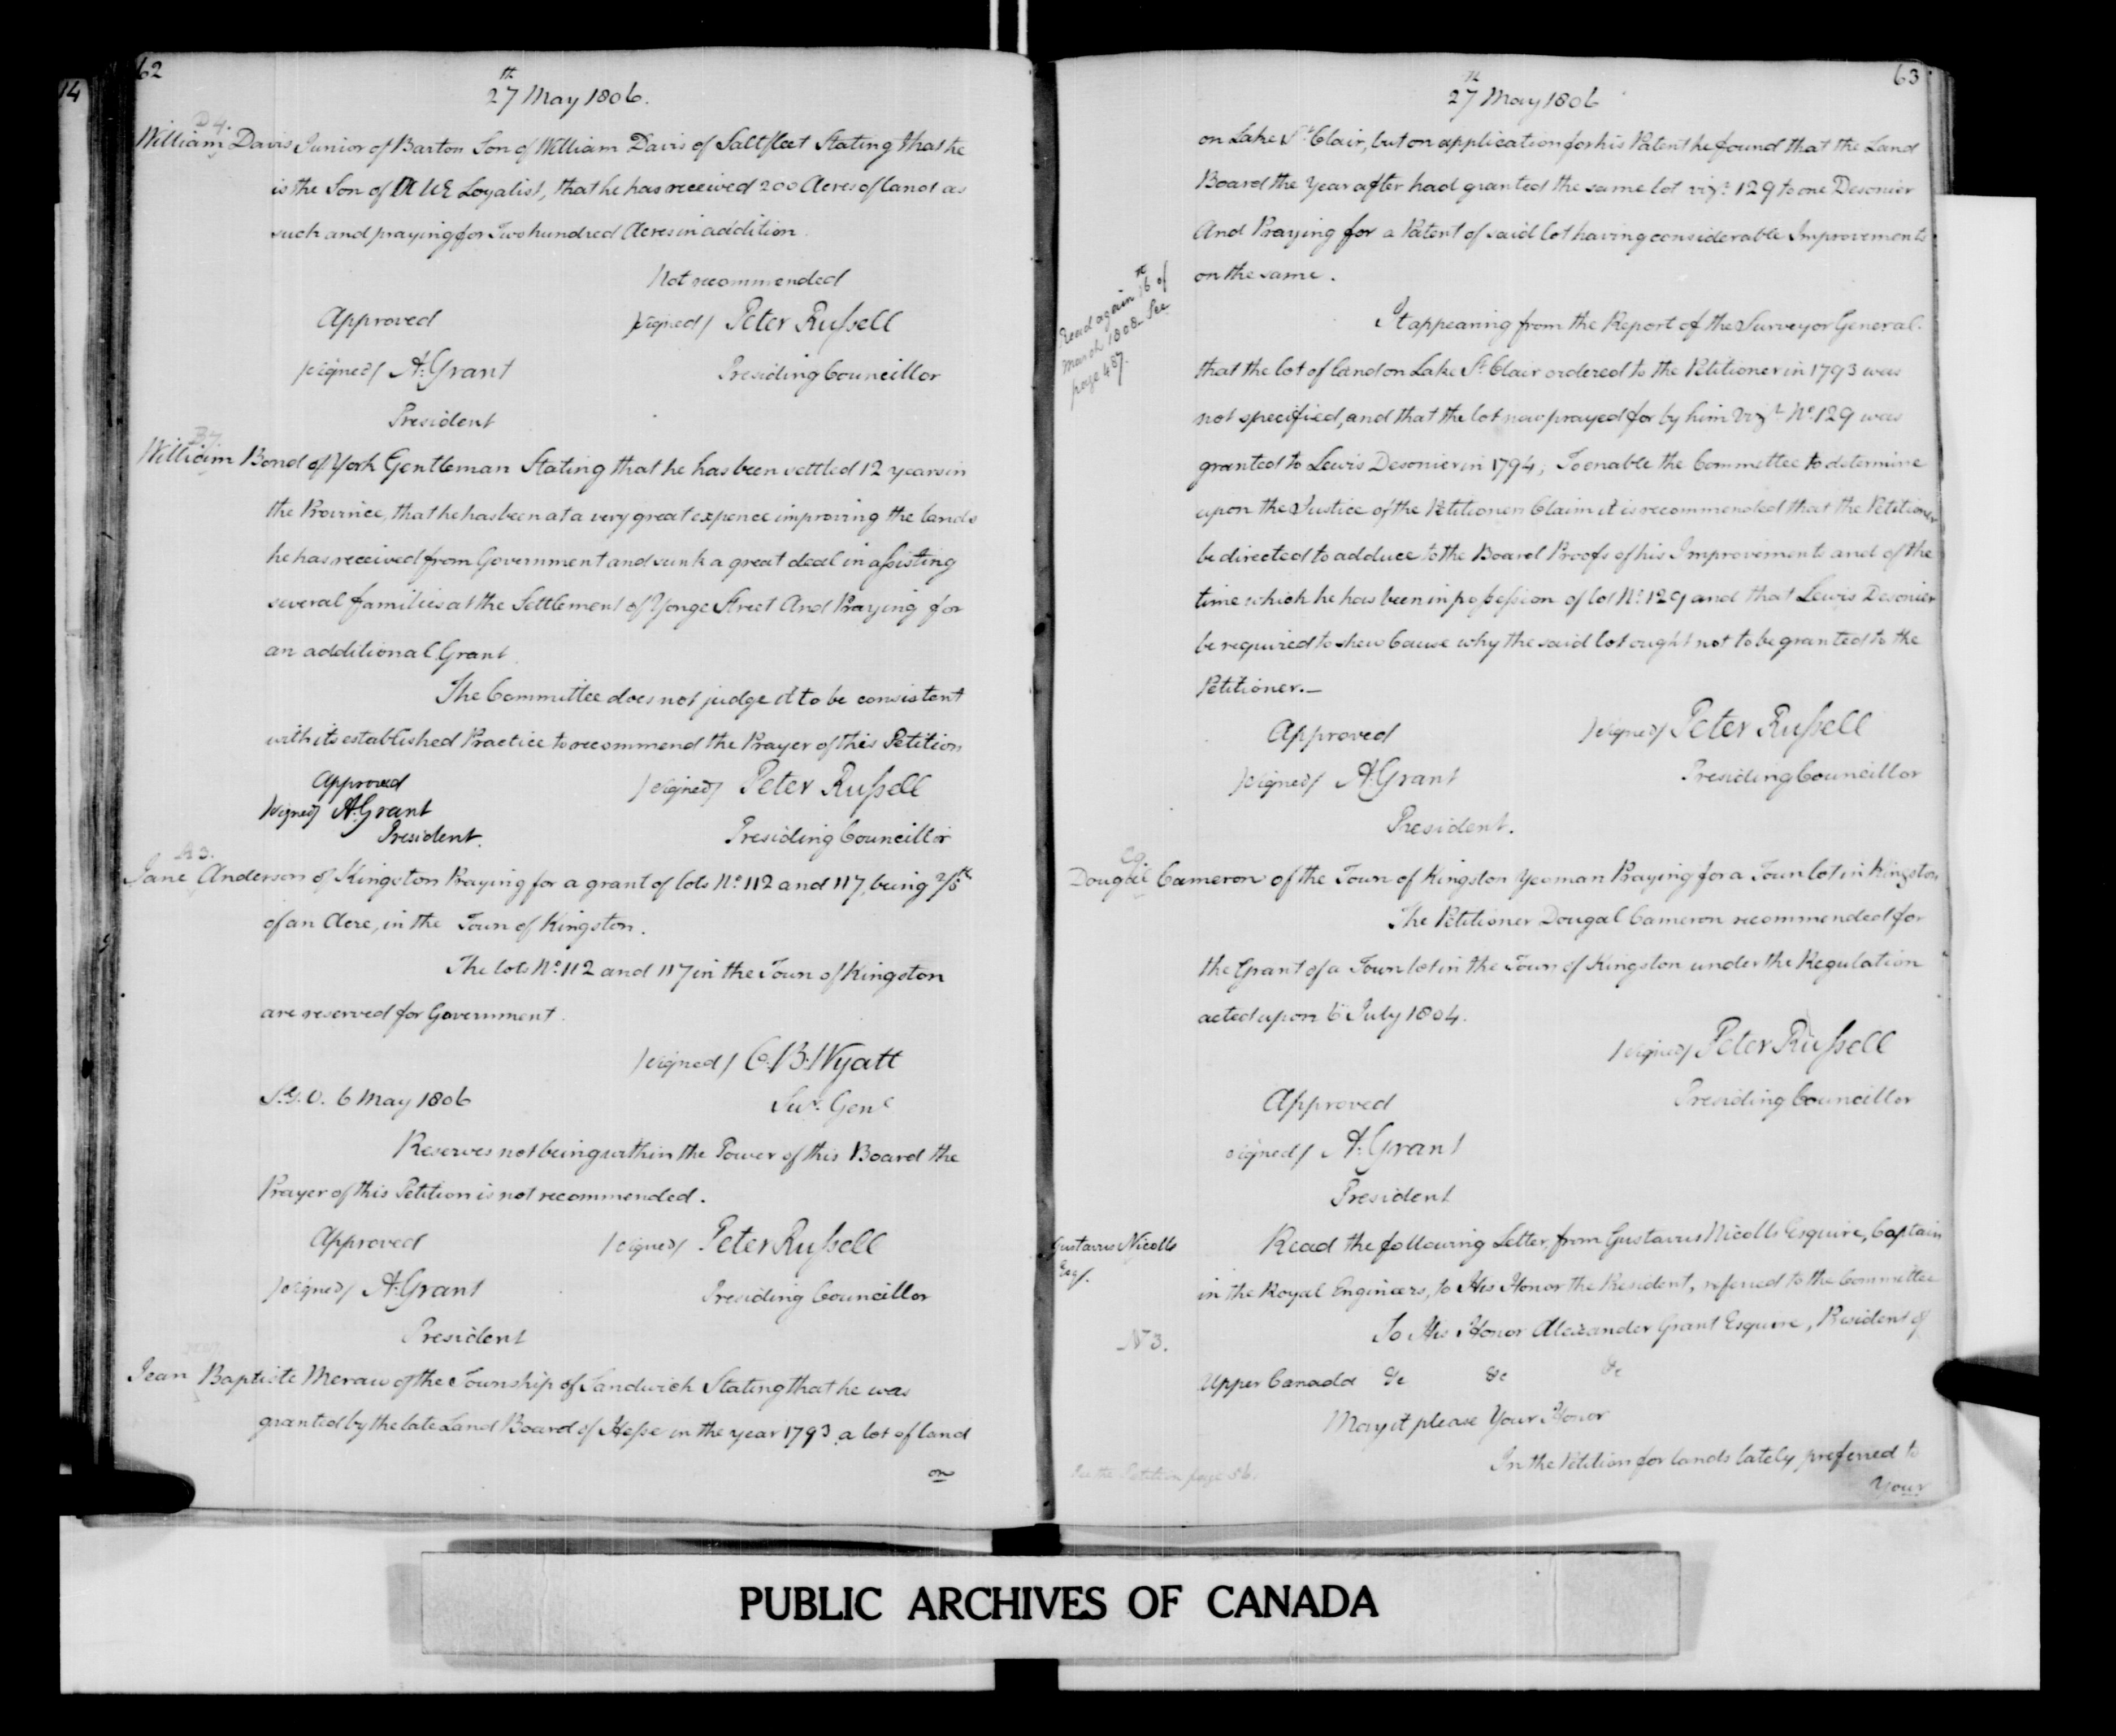 14
62
27th May 1806.
D 4.
William Davis Junior of Barton Son of William Davis of Saltfleet Stating that he
is the Son of UE Loyalist, that he has received 200 Acres of land as
such and praying for Two hundred Acres in addition.
Not recommended
Approved
/signed/ Peter Russell
/signed/ A: Grant
Presiding Councillor
President
B7.
William Bond of York Gentleman Stating that he has been settled 12 years in
the Province, that he has been at a very great expence improving the lands
he has received from Government and sunk a great deal in assisting
several families at the Settlement of Yonge Street And Praying for
an additional Grant.
The Committee does not judge it to be consistent
with its established Practice to recommend the Prayer of this Petition
Approved
/signed/ Peter Russell
/signed/ A: Grant
President.
Presiding Councillor
A 3.
Jane Anderson of Kingston Praying for a grant of lots No. 112 and 117, being 2/5th
of an Acre, in the Town of Kingston.
The lots No. 112 and 117 in the Town of Kingston
are reserved for Government.
/signed/ C. B. Wyatt
S.G.O. 6 May 1806
Sur. Genl
Reserves not being within the Power of this Board the
Prayer of this Petition is not recommended.
Approved
/signed/ Peter Russell
/signed/ A: Grant
Presiding Councillor
President
Jean Baptiste Meraw of the Township of Sandwich Stating that he was
granted by the late Land Board of Hesse in the year 1793 a lot of land
on
63
27th May 1806
on Lake St. Clair, but on application for his Patent he found that the Land
Board the Year after had granted the same lot vizt. 129 to one Desonier
And Praying for a Patent of said lot having considerable Improvements
on the same.
Read again 16th of
March 1808 - See
page 487.
It appearing from the Report of the Surveyor General
that the lot of land on Lake St. Clair ordered to the Petitioner in 1793 was
not specified, and that the lot now prayed for by him Vizt No. 129 was
granted to Lewis Desonier in 1794; To enable the Committee to determine
upon the Justice of the Petitioners Claim it is recommended that the Petitioner
be directed to adduce to the Board Proofs of his Improvements and of the
time which he has been in possession of lot No. 129 and that Lewis Desonier
be required to shew Cause why the said lot ought not to be granted to the
Petitioner.—
Approved
/signed/ Peter Russell
/signed/ A: Grant
Presiding Councillor
President.
C9
Dougal Cameron of the Town of Kingston Yeoman Praying for a Town lot in Kingston
The Petitioner Dougal Cameron recommended for
the Grant of a Town lot in the Town of Kingston under the Regulation
acted upon 6 July 1804.
/signed/ Peter Russell
Approved
Presiding Councillor
signed/ A: Grant
President
Gustavus Nicolls
Esq/.
Read the following Letter from Gustavus Nicolls Esquire, Captain
in the Royal Engineers, to His Honor the President, referred to the Committee
To His Honor Alexander Grant Esquire, President of
No 3.
Upper Canada &c &c &c
May it please Your Honor
In the Petition for lands lately preferred to
See the Petition page 56.
Your
PUBLIC ARCHIVES OF CANADA